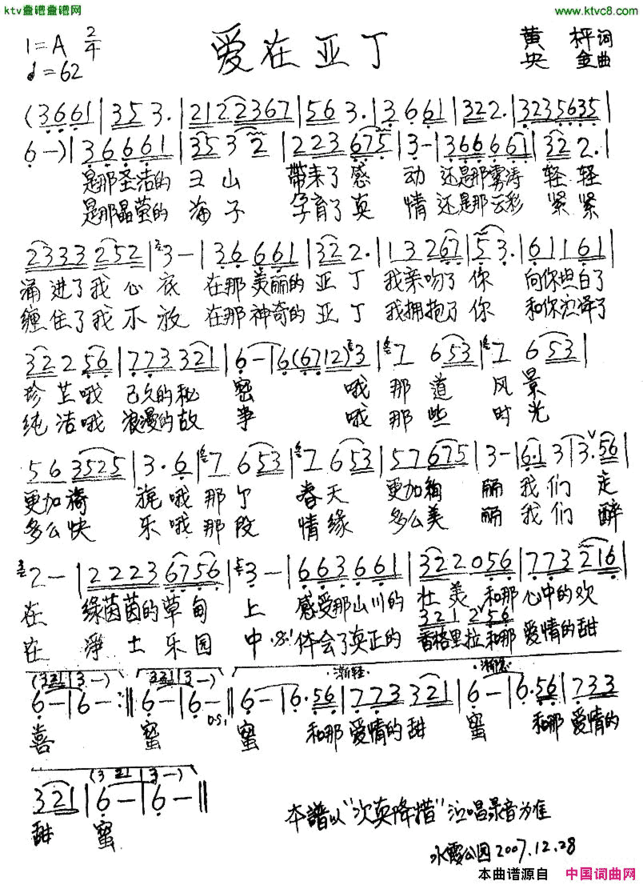 ktv皇谱皇谱网
www.ktvc8.com
爱在亚丁
1=A 2/4
♩=62
黄 枰 词
央 金 曲
(3661|353.|2122367|563.|3661|322.|3235635|
6-)|36661|3532|223675|3-|366661|322.|
是那圣洁的 山 带来了感 动 还是那雾涛 轻 轻
是那晶莹的 海 子 孕育了真 情 还是那云彩 紧 紧
2333252|3-|36661|322.|13267|53.|611161|
涌进了我心底 在那美丽的亚丁 我亲吻了你 向你坦白了
缠住了我不放 在那神奇的亚丁 我拥抱了你 和你沉浸了
32256|773321|6-|6(6712)3|7653|7653|
珍藏哦 已久的秘 密 哦 那 道 风 景
纯洁哦 浪漫的故 事 哦 那 些 时 光
563525|3.6|7653|7653|57675|3-|6133.56|
更加旖 旎哦那个 春天 更加绚 丽 我们 走
多么快 乐哦那段 情缘 多么美 丽 我们 醉
2-|22236756|3-|663661|322056|773216|
在 绿茵茵的草甸 上 感受那山川的 壮美 和那心中的欢
321 2 56
在 净土乐园 中 体会了真正的 香格里拉和那 爱情的甜
(321|3-) 321|3-) 渐轻 渐慢
6-|6-:|6-|6-:|6-|6.56|773321|6-|6.56|7733
D.S.
喜 蜜 蜜 和那爱情的甜 蜜 和那爱情的
(321|3-)
321|6-|6-||
甜 蜜
本谱以“次真降措”泣唱录音为准
水霞公园2007.12.28
本曲谱源自 中国词曲网